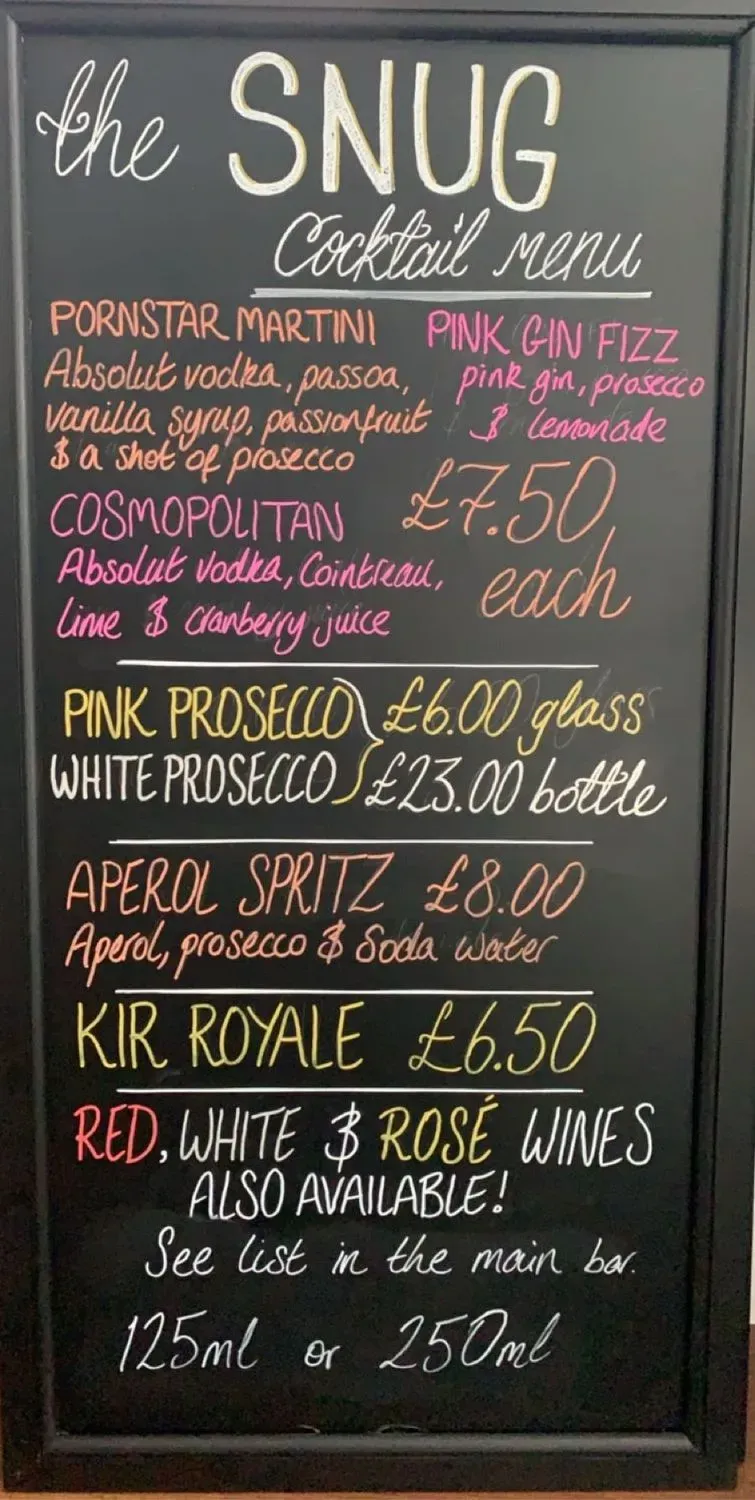 the SNUG
Cocktail menu
PORNSTAR MARTINI
Absolut vodka, passoa,
vanilla syrup, passionfruit
& a shot of prosecco
PINK GIN FIZZ
pink gin, prosecco
& lemonade
COSMOPOLITAN
Absolut vodka, Cointreau,
lime & cranberry juice
£7.50
each
PINK PROSECCO £6.00 glass
WHITE PROSECCO £23.00 bottle
APEROL SPRITZ £8.00
Aperol, prosecco & Soda water
KIR ROYALE £6.50
RED, WHITE & ROSÉ WINES
ALSO AVAILABLE!
See list in the main bar.
125ml or 250ml